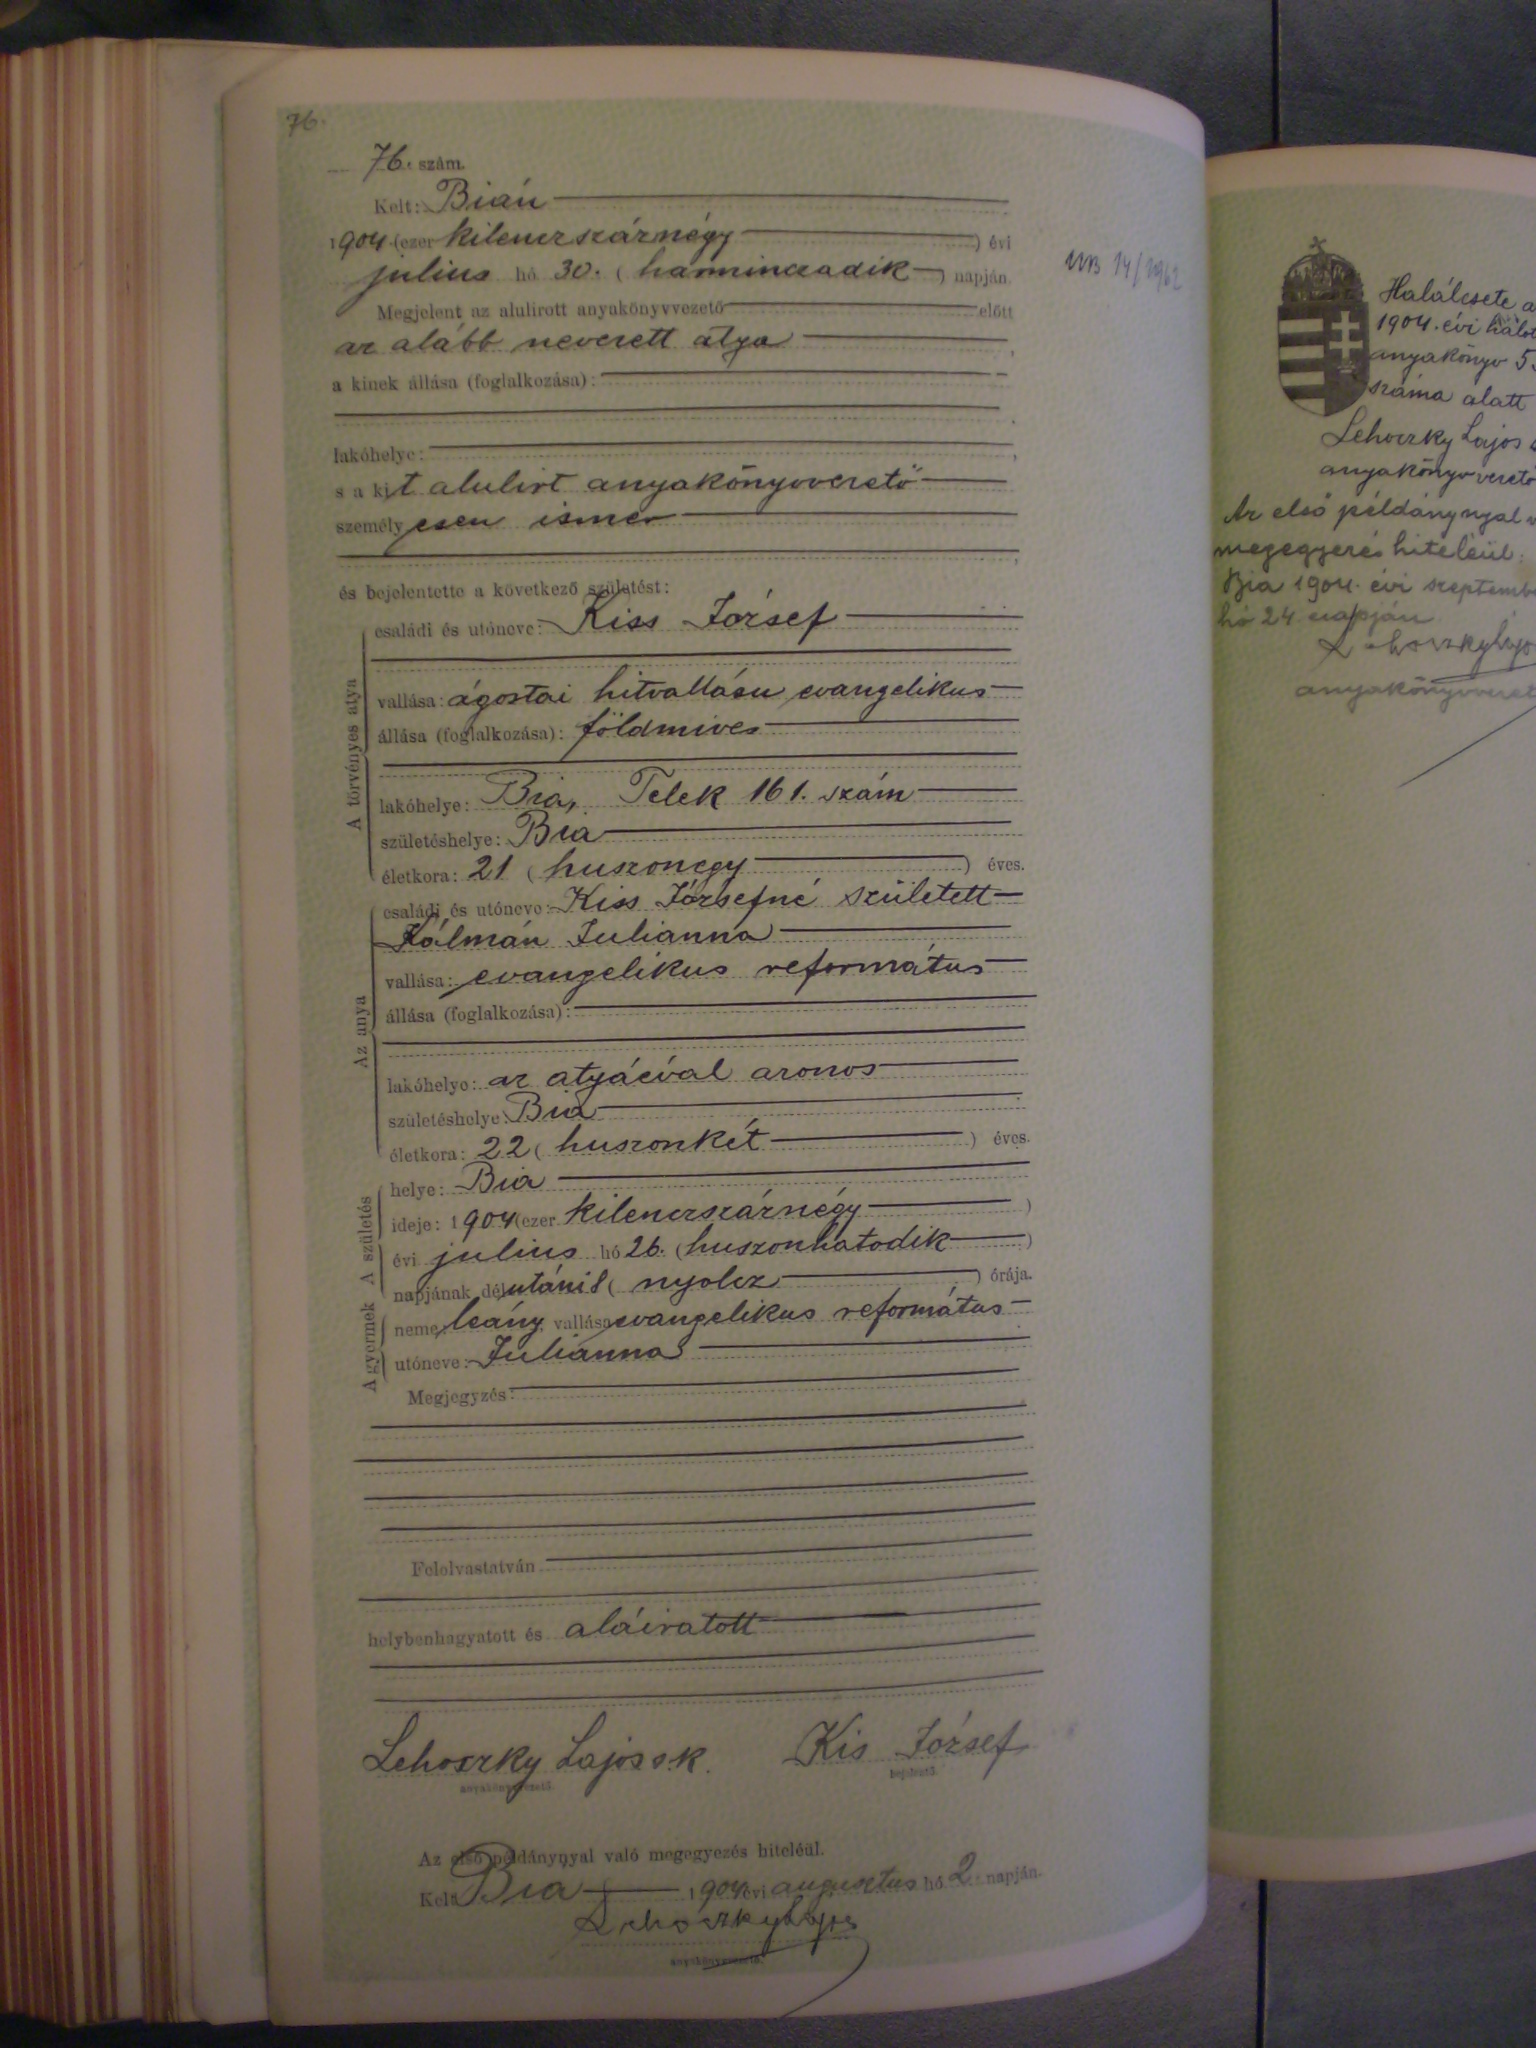 76.
76. szám.
Kelt: Bián
1904 (ezer kilenczszáznégy) évi
julius hó 30. (harminczadik) napján.
Megjelent az alulirott anyakönyvvezető előtt
az alább nevezett atya
a kinek állása (foglalkozása):
lakóhelye:
s a kit alulirt anyakönyvvezető
személyesen ismer
és bejelentette a következő születést:
A törvényes atya
családi és utóneve: Kiss József
vallása: ágostai hitvallásu evangelikus
állása (foglalkozása): földmives
lakóhelye: Bia, Telek 161. szám
születéshelye: Bia
életkora: 21 (huszonegy) éves.
Az anya
családi és utóneve: Kiss Józsefné született
Kálmán Julianna
vallása: evangelikus református
állása (foglalkozása):
lakóhelye: az atyáéval azonos
születéshelye: Bia
életkora: 22 (huszonkét) éves.
A születés
helye: Bia
ideje: 1904 (ezer kilenczszáznégy)
évi julius hó 26. (huszonhatodik)
napjának délutáni 8 (nyolcz) órája.
A gyermek
neme: leány, vallása: evangelikus református
utóneve: Julianna
Megjegyzés:
Felolvastatván
helybenhagyatott és aláiratott
Lehoczky Lajos s.k. Kis József
anyakönyvvezető. bejelentő.
Az első példánynyal való megegyezés hiteléül.
Kelt Bia 1904 évi augusztus hó 2 napján.
Lehoczky Lajos
anyakönyvvezető.
Halálesete a
1904. évi halot
anyakönyv
száma alatt
Lehoczky Lajos
anyakönyvvezető
Az első példánynyal v
megegyezés hiteléül:
Bia 1904. évi szeptembe
hó 24 napján
Lehoczky Lajo
anyakönyvvezet